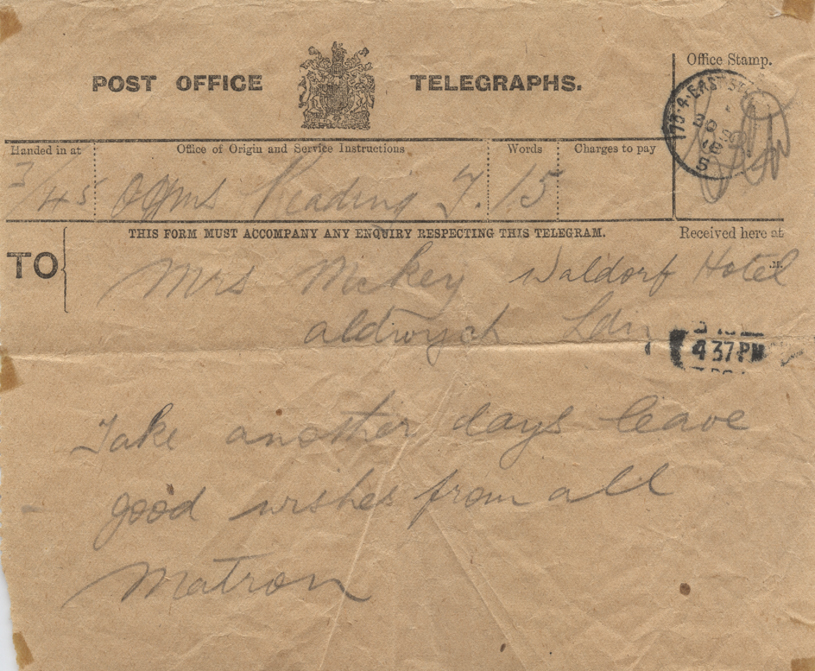 POST OFFICE TELEGRAPHS.
Office Stamp.
Handed in at
Office of Origin and Service Instructions
Words
Charges to pay
3/45
Reading
15
THIS FORM MUST ACCOMPANY ANY ENQUIRY RESPECTING THIS TELEGRAM.
Received here at
TO
Mrs Waldorf Hotel
aldwych Ldn
4 37 PM
Take another days leave
good wishes from all
Matron